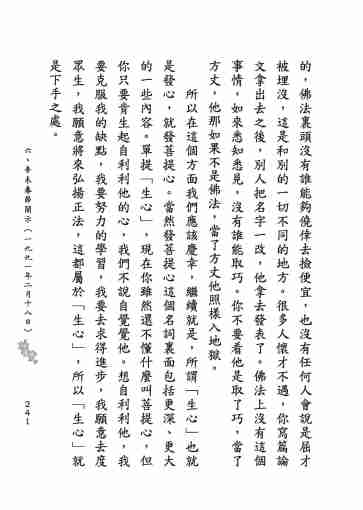 的，佛法裏頭沒有誰能夠僥倖去撿便宜，也沒有任何人會說是屈才
被埋沒，這是和別的一切不同的地方。很多人懷才不遇，你寫篇論
文拿出去之後，別人把名字一改，他拿去發表了。佛法上沒有這個
事情。如來悉知悉見，沒有誰能取巧。你不要看他是取了巧，當了
方丈，他那如果不是佛法，當了方丈他照樣入地獄。
所以在這個方面我們應該慶幸，繼續就是，所謂「生心」也就
是發心，就發菩提心。當然發菩提心這個名詞裏面包括更深、更大
的一些內容。單提「生心」，現在你雖然還不懂什麼叫菩提心，但
你只要肯生起自利利他的心，我們不說自覺覺他。想自利利他，我
要克服我的缺點，我要努力的學習，我要去求得進步，我願意去度
眾生，我願意將來弘揚正法，這都屬於「生心」，所以「生心」就
是下手之處。
六、辛未春節開示（一九九一年二月十八日）
241